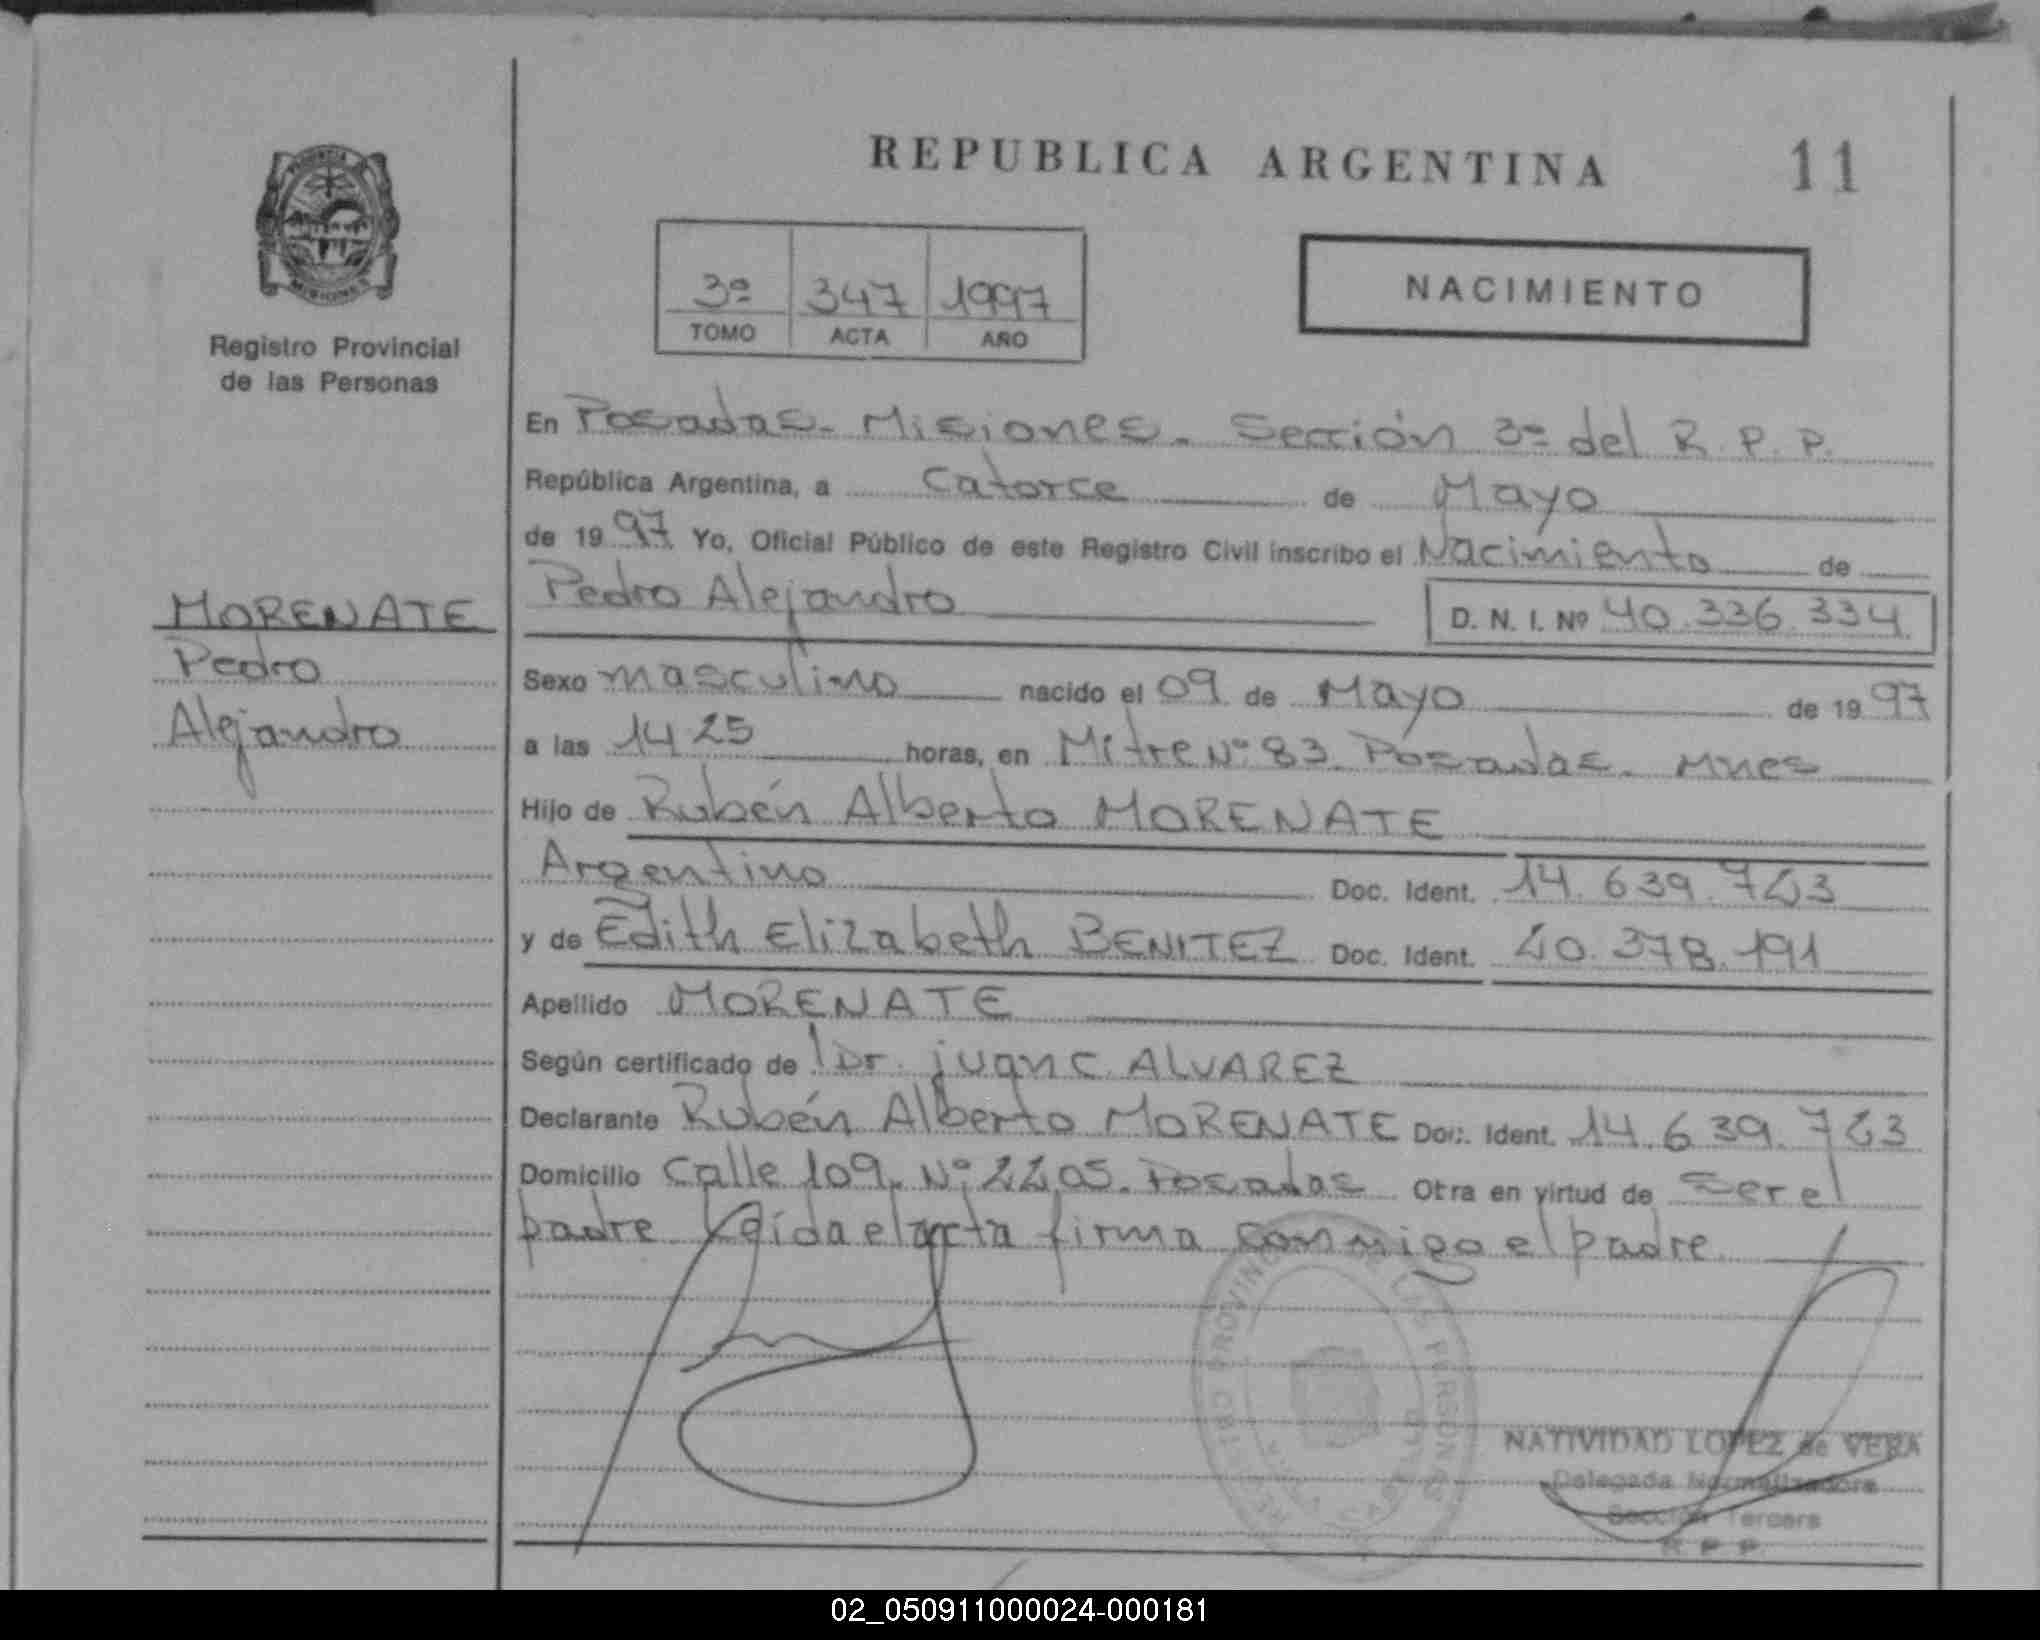 REPUBLICA ARGENTINA
11
3º 347 1997
TOMO ACTA AÑO
NACIMIENTO
MISIONES
Registro Provincial
de las Personas
MORENATE
Pedro
Alejandro
En Posadas. Misiones. Sección 3ª del R. P. P.
República Argentina, a Catorce de Mayo
de 1997 Yo, Oficial Público de este Registro Civil inscribo el Nacimiento de
Pedro Alejandro D. N. I. Nº 40.336.334
Sexo masculino nacido el 09 de Mayo de 1997
a las 14 25 horas, en Mitre Nº 83. Posadas. Mnes
Hijo de Rubén Alberto MORENATE
Argentino Doc. Ident. 14.639.723
y de Edith Elizabeth BENITEZ Doc. Ident. 20.378.191
Apellido MORENATE
Según certificado de Dr. juan C. ALVAREZ
Declarante Rubén Alberto MORENATE Doc. Ident. 14.639.723
Domicilio Calle 109. Nº 2205. Posadas Otra en virtud de ser el
padre. Leída el acta firma conmigo el padre.
NATIVIDAD LOPEZ de VERA
Delegada Normalizadora
Sección Tercera
R. P. P.
02_050911000024-000181